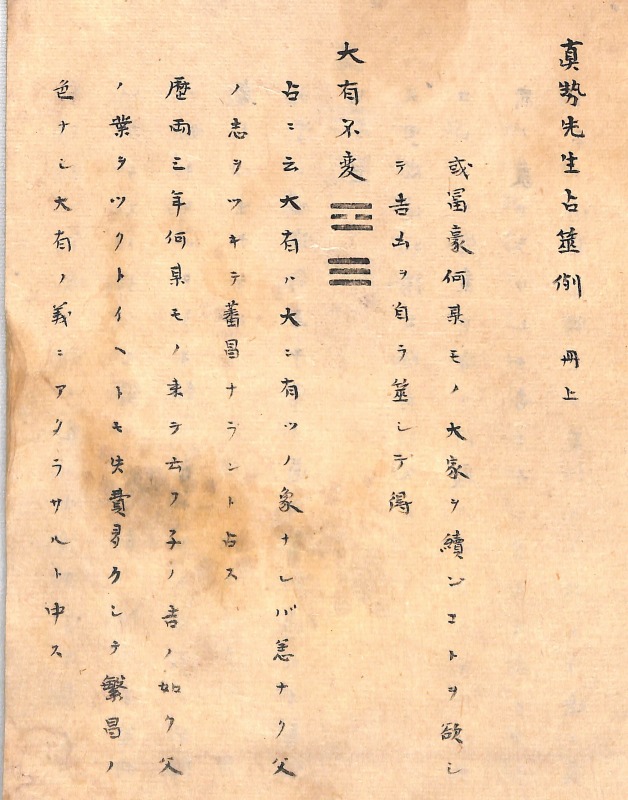 真勢先生占筮例 冊上
或冨豪何某モノ大家ヲ續ンコトヲ欲し
テ吉凶ヲ自ラ筮シテ得
大有不変 ䷍
占ニ云大有ハ大ニ有ツノ象ナレバ恙ナク父
ノ志ヲツキテ蕃昌ナラント占ス
歴両三年何某モノ来テ云フ子ノ吉ノ如ク父
ノ業ヲツクトイヘトモ失費多クシテ繁昌ノ
色ナシ大有ノ義ニアタラサルト申ス